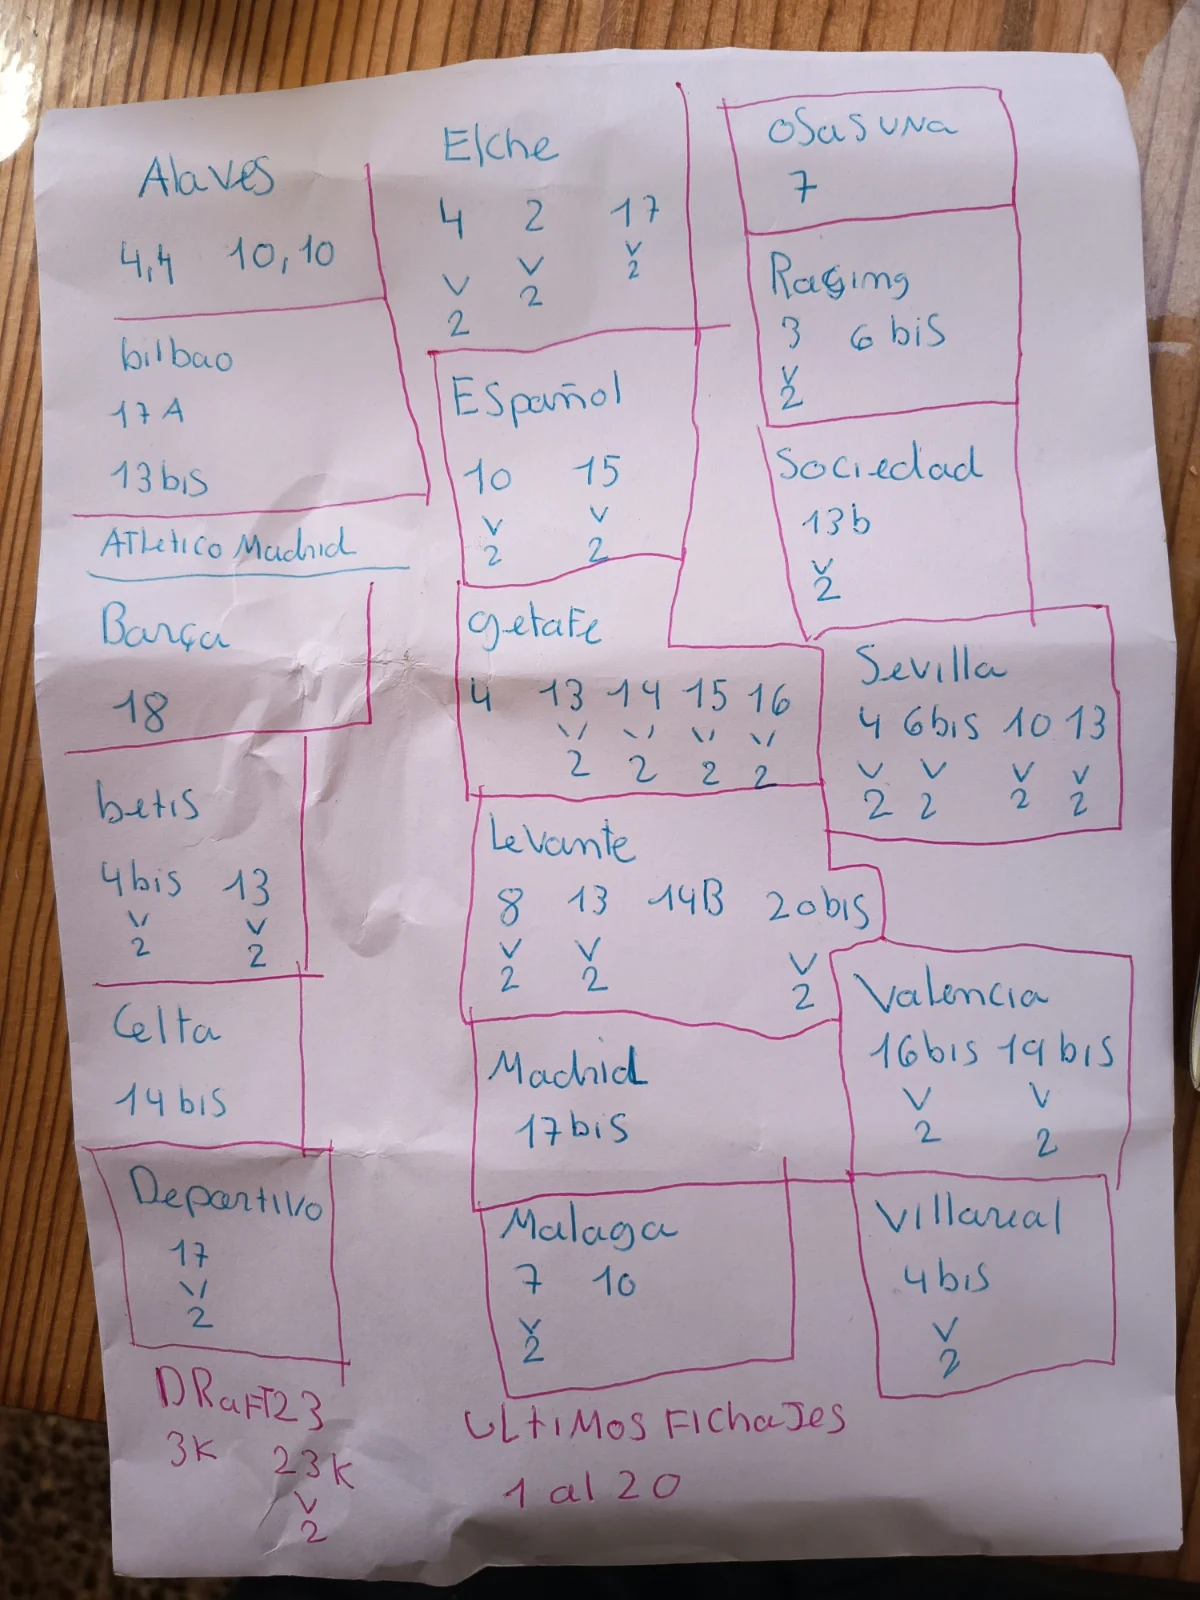 Alaves
4,4 10,10
bilbao
17 A
13 bis
ATLetico Madrid
Barça
18
betis
4 bis 13
v v
2 2
Celta
14 bis
Deportivo
17
v
2
DRaFT23
3K 23K
v
2
Elche
4 2 17
v v v
2 2 2
ESpañol
10 15
v v
2 2
getafe
4 13 14 15 16
v v v v
2 2 2 2
Levante
8 13 14B 20bis
v v v
2 2 2
Madrid
17 bis
Malaga
7 10
v
2
ULtiMos FIChaJES
1 al 20
OSasuna
7
Racing
3 6 bis
v
2
Sociedad
13b
v
2
Sevilla
4 6bis 10 13
v v v v
2 2 2 2
Valencia
16bis 19bis
v v
2 2
Villareal
4 bis
v
2